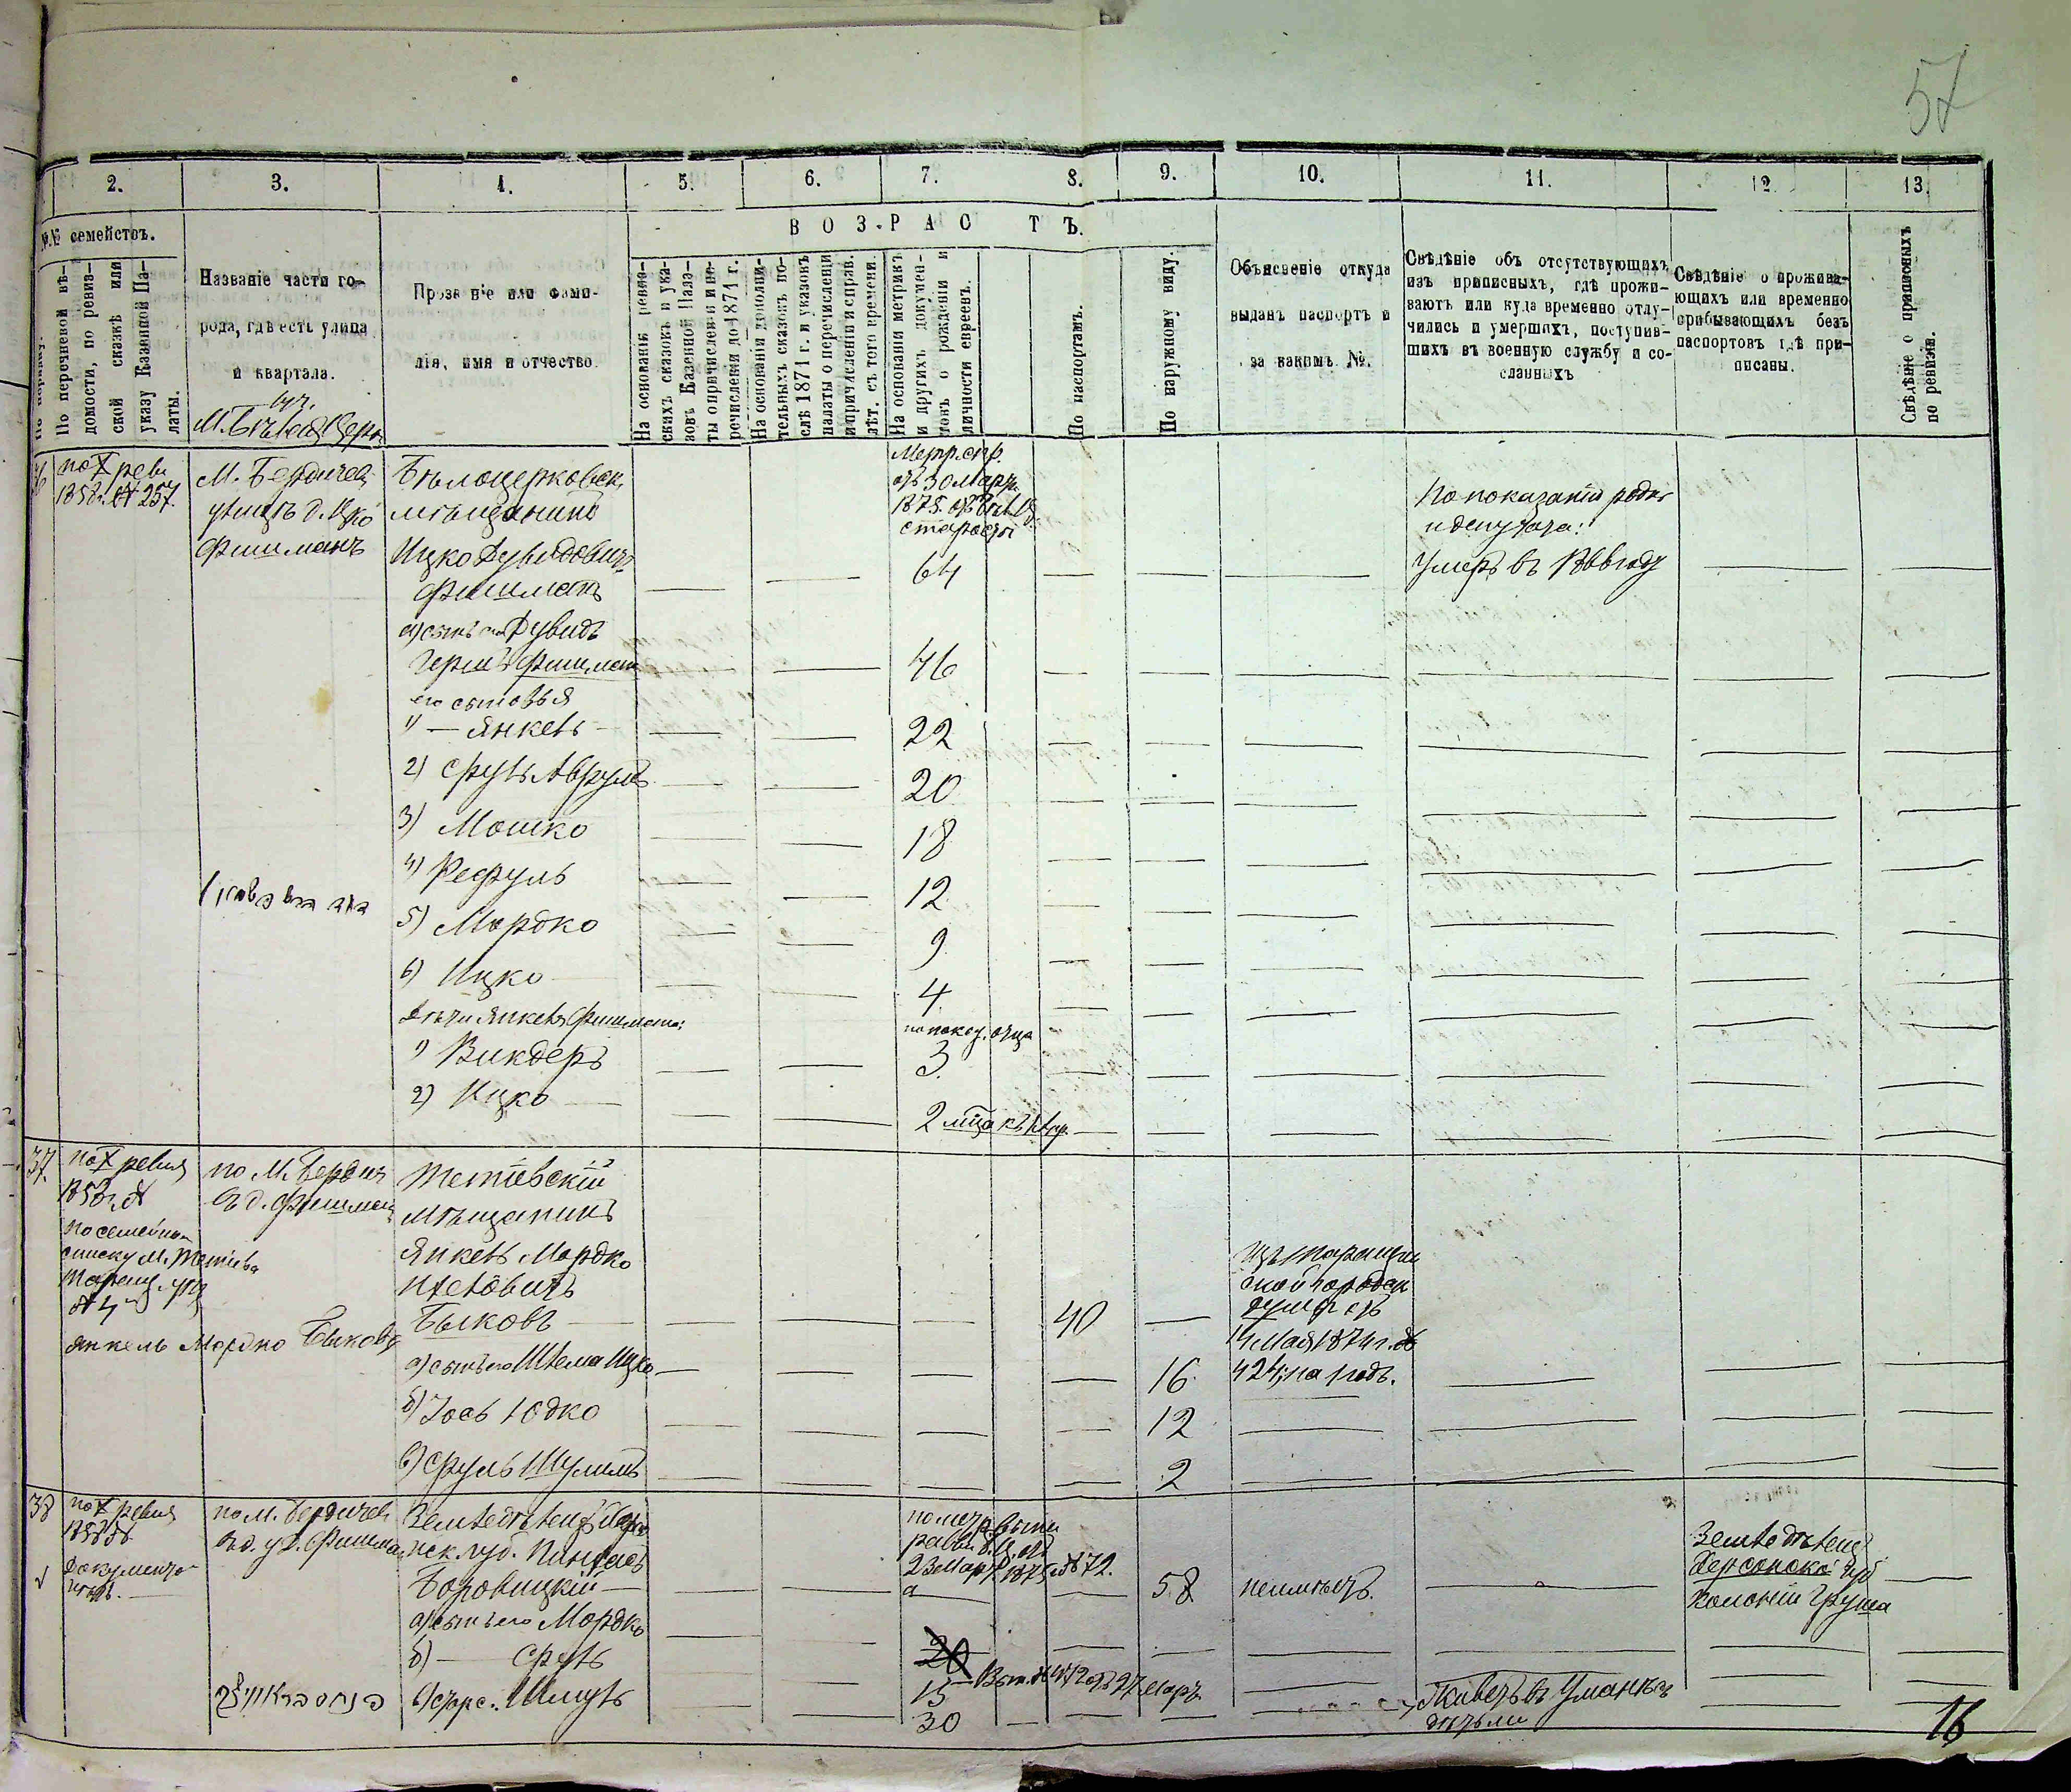 57
2.
3.
4.
5.
6.
7.
8.
9.
10.
11.
12.
13.
№№ семействъ.
По порядку.
По перечневой вѣ-
домости, по ревиз-
ской сказкѣ или
указу Казенной Па-
латы.
Названіе части го-
рода, гдѣ есть улица
и квартала.
М. Бѣлая Церк
Прозваніе или фами-
лія, имя и отчество.
ВОЗРАСТЪ.
На основаніи ревиз-
скихъ сказокъ и ука-
зовъ Казенной Пала-
ты о причисленіи и пе-
речисленіи до 1871 г.
На основаніи дополни-
тельныхъ сказокъ по-
слѣ 1871 г. и указовъ
палаты о перечисленіи
и причисленіи и справ.
лѣт. съ того времени.
На основаніи метрикъ
и другихъ докумен-
товъ о рожденіи и
личности евреевъ.
По паспортамъ.
По наружному виду.
Объясненіе откуда
выданъ паспортъ и
за какимъ №.
Свѣдѣніе объ отсутствующихъ
изъ приписныхъ, гдѣ прожи-
ваютъ или куда временно отлу-
чились и умершихъ, поступив-
шихъ въ военную службу и со-
сланныхъ
Свѣдѣніе о прожива-
ющихъ или временно
прибывающихъ безъ
паспортовъ гдѣ при-
писаны.
Свѣдѣніе о приписныхъ
по ревизіи.
36
по X реви
1858 г. № 257.
М. Бердичев.
улицѣ д. Ицко
Фишманъ
Бѣлоцерковск.
мѣщанинъ
Ицко Дувидовичъ
Фишманъ
Метр. спр.
отъ 30 Марта
1875. отъ
старосты
64
По показанію родст
и депутата:
Умеръ въ 1866 году
а) сынъ его Дувидъ
Гершъ Фишманъ
46
его сыновья
1) — Янкель —
22
2) Сруль Аврумъ
20
3) Мошко
18
4) Рефуль
12
5) Мордко
9
6) Ицко
4
Дѣти Янкеля Фишмана:
по показ. отца
1) Викдеръ
3
2) Ицко
2 мѣца
37.
по X ревизіи
1858 г. №
по семейном
списку М. Тетіева
Таращ. уѣз
№ 4
Янкель Мордко Быковъ
по М. Бердич
въ д. Фишман
Тетіевскій
мѣщанинъ
Янкель Мордко
Быковъ
40
Изъ Таращан
ской городск
думы отъ
14 Мая 1874 г. №
424, на годъ.
а) сынъ его Шлема Ицко
16
б) Іось Юдко
12
в) Сруль Шулимъ
2
38
по X ревизіи
1858 №
Документо
нѣтъ.
по М. Бердичев
въ д. у Д. Фишма
Земледѣлецъ Херсо
нск. губ. Пинхасъ
Боровицкій
23 Марта 1875 № 72.
58
неимѣетъ.
Земледѣлецъ
Херсонской губ
Колоніи
а) сынъ его Мордко
20
б) — Сруль
15
отъ 27 Март
в) Шмуль
30
Живетъ въ Умани съ
дѣтьми
פנחס באראוויצקי
16